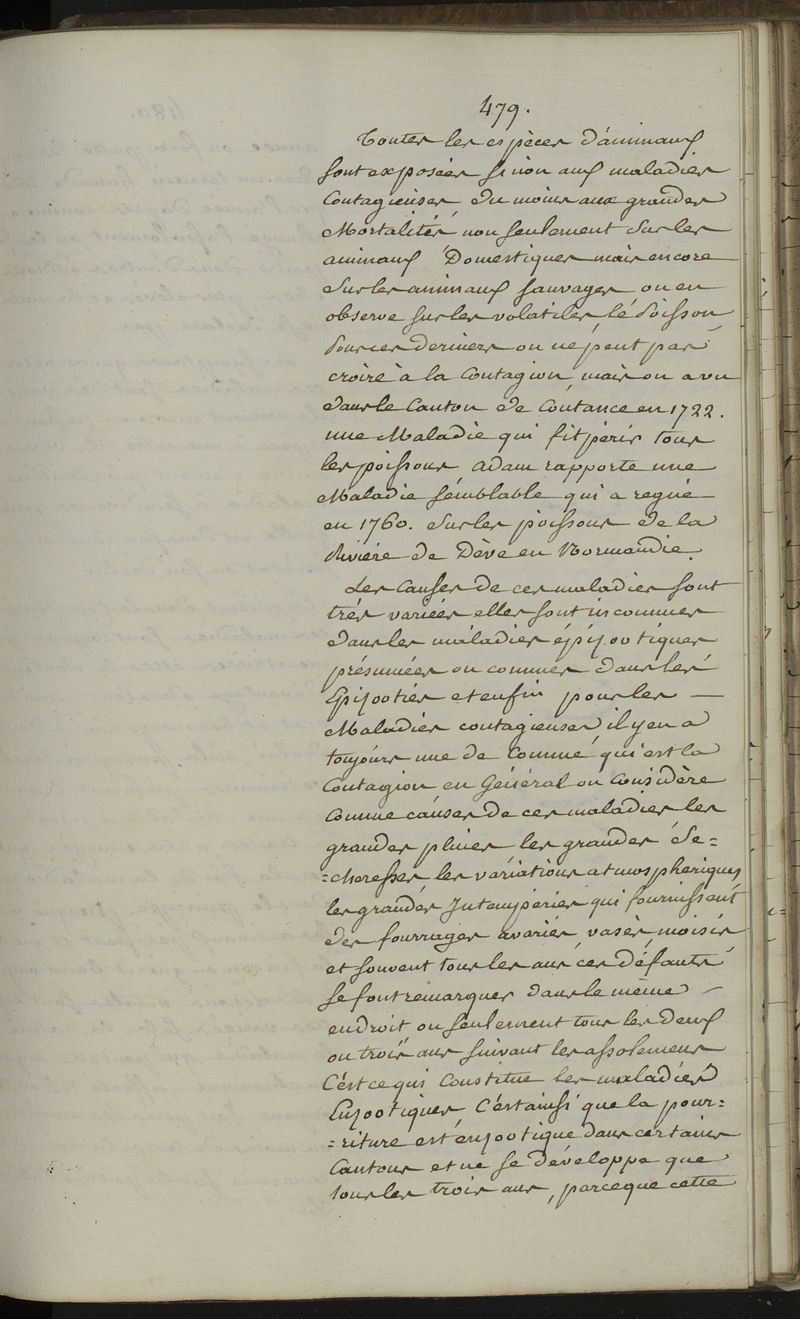 479.
Toutes les espèces d'animaux
sont exposées sinon aux maladies
Contagieuses du moins aux grandes
Mortalités non seulement sur les
animaux Domestiques mais encore
sur les animaux sauvages on en
observe sur les volatiles lé Poisson
Pour ces derniers on ne peut pas
croire à la Contagion, mais on a vu
dans le Canton de Coutance en 1722.
une Maladie qui fit périr tous
les poissons, adam rapporte une
Maladie semblable qui a regné
en 1760. sur les poissons de la
Riviere de Dève en Normandie.
Les Causes de ces maladies sont
très variées elles sont inconnues
dans les maladies épizootiques
présumées ou connues dans les
Epizooties et enfin pour les —
Maladies contagieuses il y en a
toujours une de Connue qui est la
Contagion en Général on Considère
Comme causes de ces maladies les
grandes pluies les grandes Sé=
=cheresses les variations atmospheriques
les grandes Intemperies qui fournissent
des fourrages avariés, vasés, moisis
et souvent tous les ans ces défauts
se font remarquer dans le même —
endroit ou seulement tous les deux
ou trois ans suivant les assolemens
C'est ce qui Constitue les maladies
Enzootiques C'est ainsi que la pour=
=riture est enzootique dans certains
Cantons et ne se développe que
tous les trois ans, parceque cette